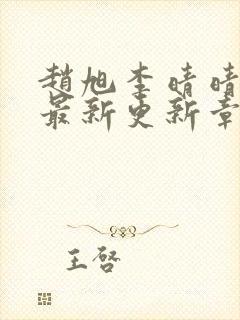 趙旭李晴晴
最新更新章
王啓